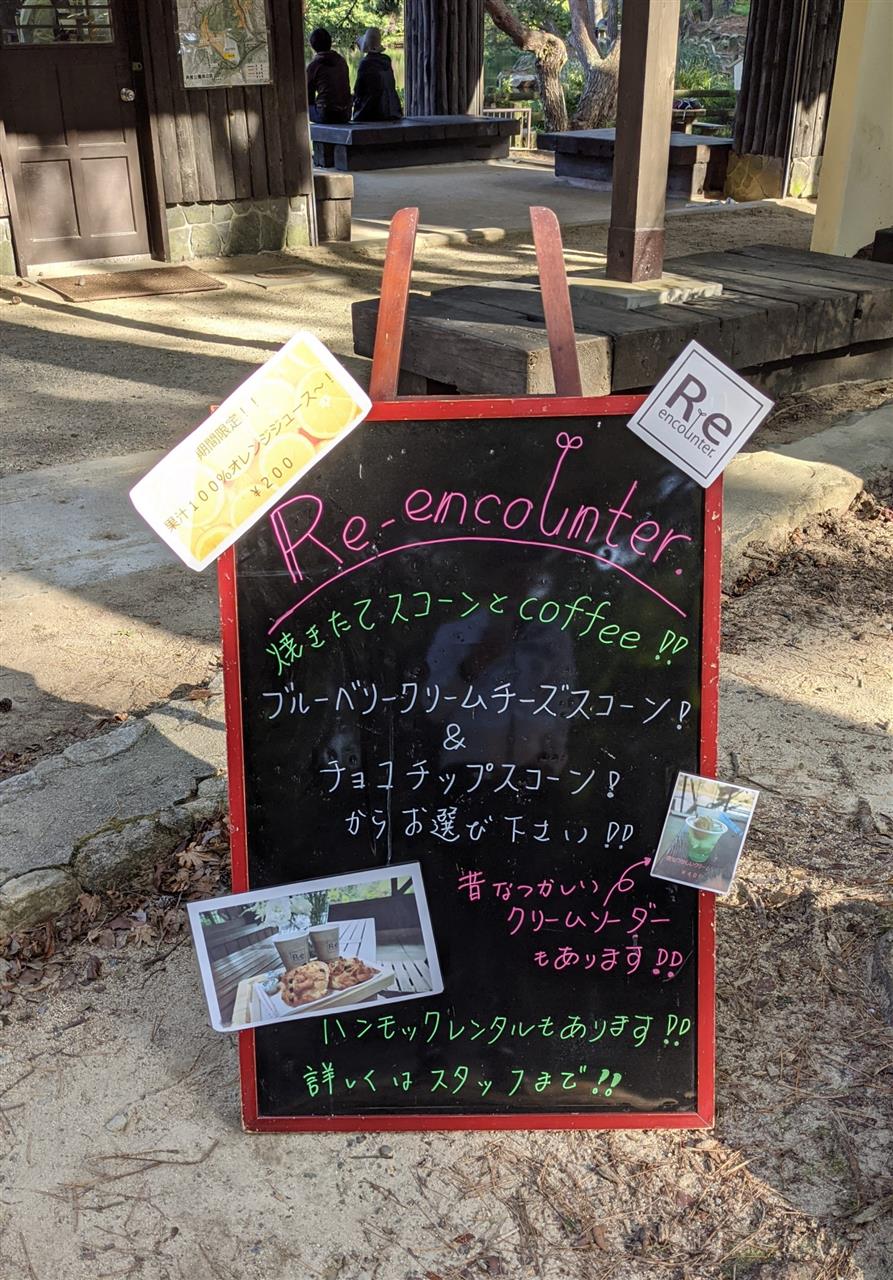 期間限定！！
果汁１００％オレンジジュース～！
￥２００
Re
encounter.
Re-encounter.
焼きたてスコーンとcoffee!!
ブルーベリークリームチーズスコーン!
&
チョコチップスコーン!
からお選び下さい!!
昔なつかしい
クリームソーダー
もあります!!
Re
Re
ハンモックレンタルもあります!!
詳しくはスタッフまで!!